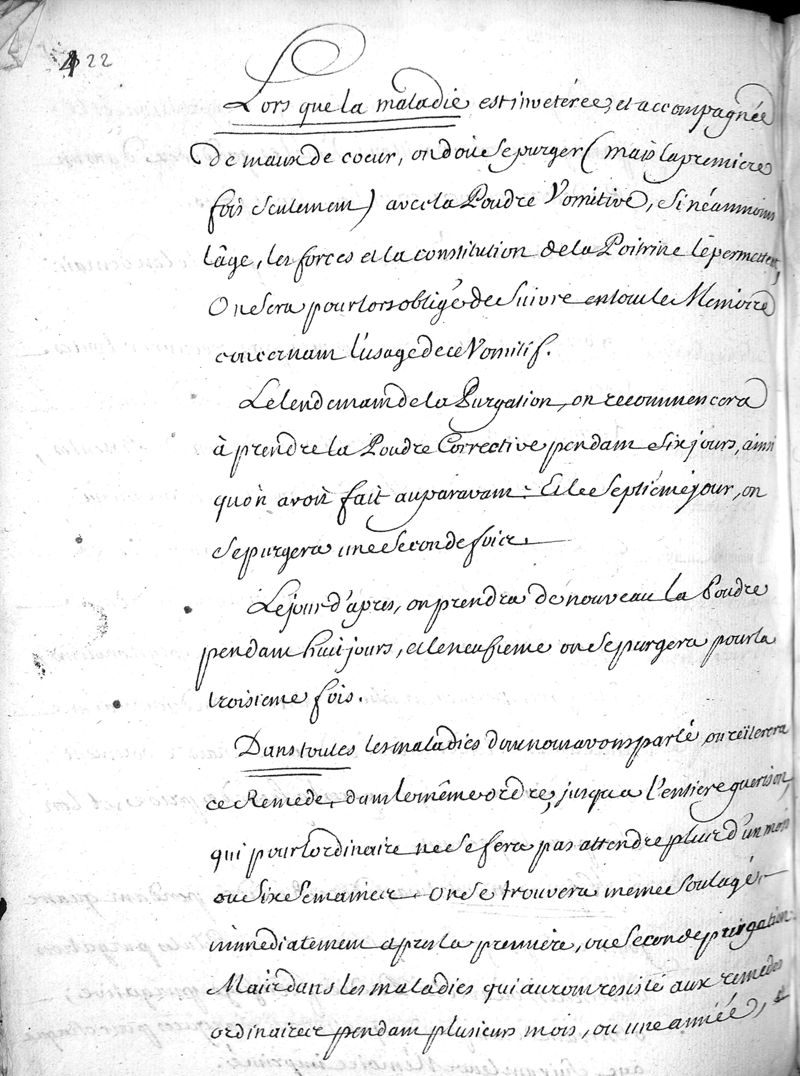 422
Lors que la maladie est inveterée, et accompagnée
de maux de coeur, on doit se purger (mais la premiere
fois seulement) avec la Poudre Vomitive, si néanmoins
l'âge, les forces et la constitution de la Poitrine le permettent,
On sera pour lors obligé de suivre en tout le Memoire
concernant l'usage de ce Vomitif.
Le lendemain de la Purgation, on recommencera
à prendre la Poudre Corrective pendant six jours, ainsi
qu'on avoit fait auparavant: Et le septiéme jour, on
se purgera une seconde fois.
Le jour d'apres, on prendra de nouveau la Poudre
pendant huit jours, et le neufieme on se purgera pour la
troisieme fois.
Dans toutes les maladies dont nous avons parlé, on reïterera
ce Remede, dans le même ordre, jusqu'a l'entiere guerison,
qui pour l'ordinaire ne se fera pas attendre plus d'un mois
ou six semaines. On se trouvera meme soulagé
immediatement apres la premiere, ou seconde purgation.
Mais dans les maladies qui auront resisté aux remedes
ordinaires pendant plusieurs mois, ou une année,